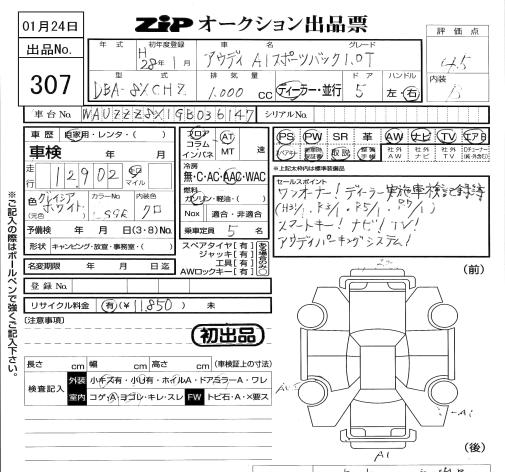 01月24日
出品No.
307
ZIP オークション出品票
評価点
4.5
内装
年式 初年度登録 車名 グレード
H 28年 1月 アウディ A1スポーツバック1.0T
型式 排気量 ドア ハンドル
DBA-8XCHZ 1,000 CC ディーラー・並行 5 左・右
車台No. WAUZZZ8X1GB036147 シリアルNo.
車歴 自家用・レンタ・( )
車検 年 月
走行 12,902 キロ マイル
色 グレイシアホワイト (元色) カラーNo. 内装色 クロ
予備検 年 月 日(3・8)No.
形状 キャンピング・放宣・事務室・( )
名変期限 年 月 日迄
登録No.
リサイクル料金 有(¥ 11850 ) 未
フロア コラム インパネ AT MT 速
冷房 無・C・AC・AAC・WAC
燃料 ガソリン・軽油・( )
Nox 適合・非適合
乗車定員 5 名
スペアタイヤ[有]
ジャッキ[有]
工具[有]
AWロックキー[有]
PS PW SR 革 AW ナビ TV エアB
取説 社外AW 社外ナビ 社外TV
*上記太枠内は標準装備品
セールスポイント
ワンオーナー!ディーラー実施車検記録簿
スマートキー!ナビ!TV!
アウディパーキングシステム!
(前)
[注意事項]
初出品
長さ cm 幅 cm 高さ cm (車検証上の寸法)
検査記入 外装 小キズ有・小U有・ホイルA・ドアミラーA・ワレ
室内 コゲ・A・ヨゴレ・キレ・スレ FW トビ石・A・×要ス
A1
(後)
※ご記入の際はボールペンで強くご記入下さい。